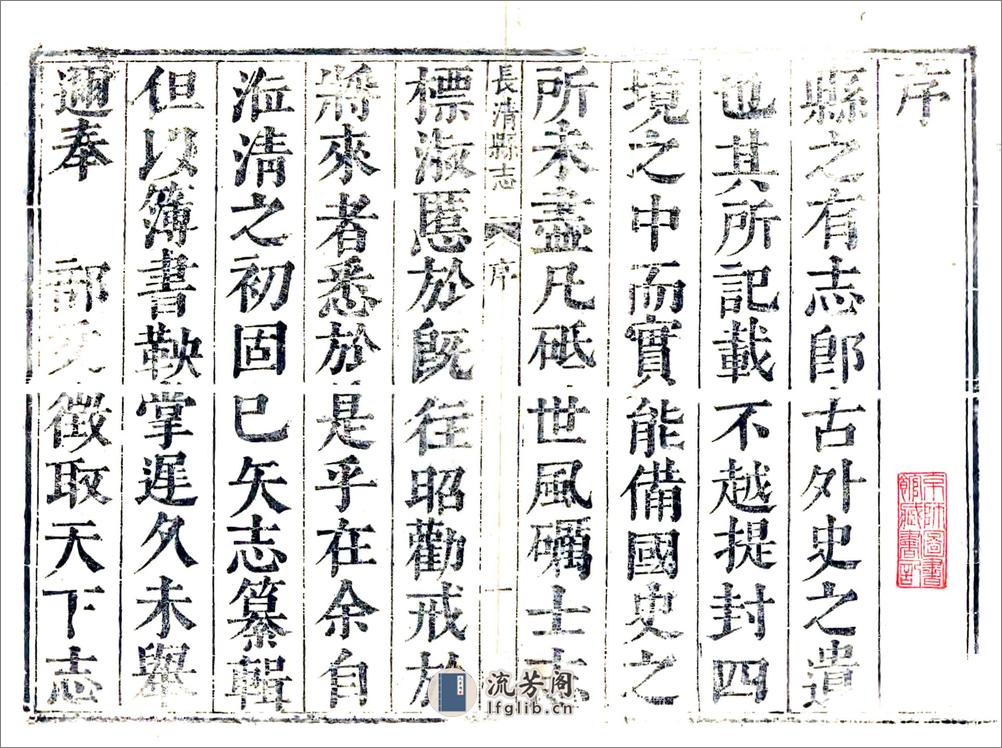 序
縣之有志郎古外史之遺
也其所記載不越提封四
境之中而實能備國史之
所未盡凡砥世風礪士志
長清縣志 序 一
標淑慝於既往昭勸戒於
將來者悉於是乎在余自
涖清之初固已矢志纂輯
但以簿書鞅掌遲久未舉
邇奉 部文徵取天下志
京師圖書
館藏書記
流芳阁
lfglib.cn